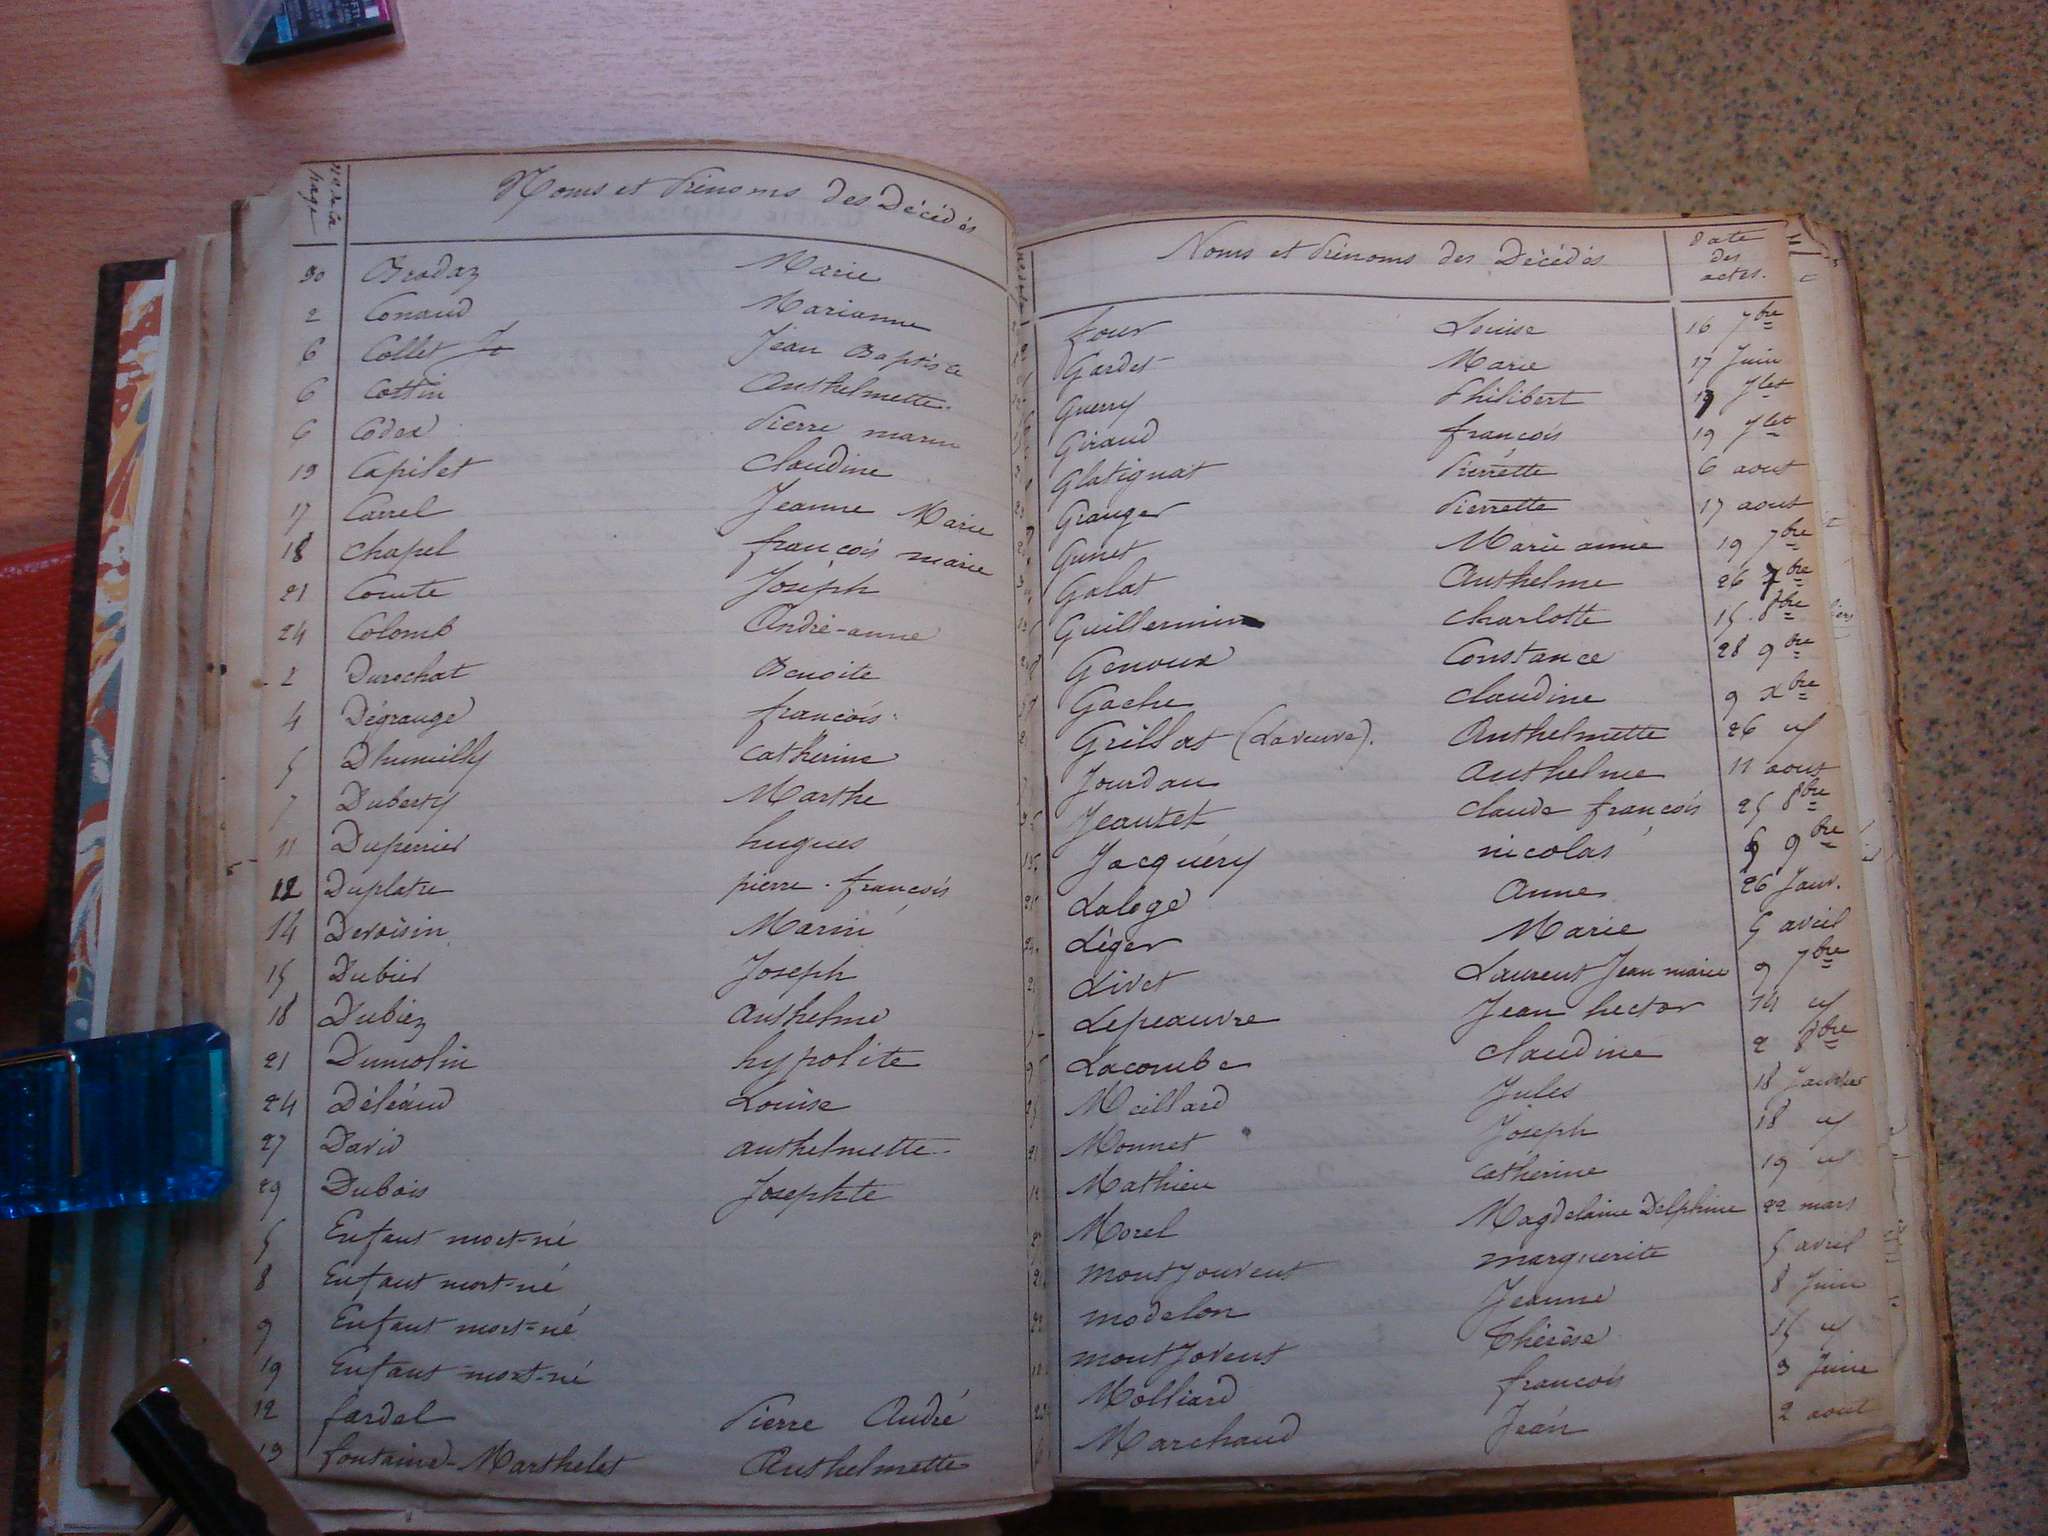 No de la page
Noms et Prénoms des Décédés
30 Brodaz Marie
2 Conaud Marianne
6 Collet Jean Baptiste
6 Cottin Anthelmette
6 Codex Pierre marin
13 Capilet Claudine
17 Carrel Jeanne Marie
18 Chapel françois marie
21 Comte Joseph
24 Colomb André-anne
2 Durochat Benoite
4 Dégrange françois
5 Dhumilly Catherine
7 Duberty Marthe
11 Duperrier hugues
12 Duplatre pierre-françois
14 Devoisin Marin
15 Dubier Joseph
18 Dubiez Anthelme
21 Dumolin hypolite
24 Déléaud Louise
27 David anthelmette
29 Dubois Josephte
5 Enfant mort-né
8 Enfant mort-né
9 Enfant mort-né
19 Enfant mort-né
12 fardel Pierre André
13 fontaine-Marthelet Anthelmette
Noms et Prénoms des Décédés Date des actes.
four Louise 16 7bre
Gardet Marie 17 Juin
Guerry Philibert 17 Jlet
Giraud françois 19 Jlet
Glatignat Pierrette 6 aout
Granger Pierrette 17 aout
Gunet Marie anne 19 7bre
Galat Anthelme 26 7bre
Guillermin Charlotte 15 8bre
Genoux Constance 28 9bre
Gache Claudine 9 Xbre
Grillat (La veuve). Anthelmette 26 id
Jourdan Anthelme 11 aout
Jeantet Claude françois 25 8bre
Jacquéry nicolas 9bre
Laloge Anne 26 Janv.
Léger Marie 5 avril
Livet Laurent Jean marie 9 7bre
Lepeauvre Jean hector 14 id
Lacombe Claudine 2 8bre
Meillard Jules 18 Janvier
Monnet Joseph 18 id
Mathieu Catherine 19 id
Morel Magdelaine Delphine 22 mars
montJouvent marguerite 5 avril
modelon Jeanne 8 Juin
montJovent Thérèse 15 id
Molliard françois 3 Juin
Marchand Jean 2 aout